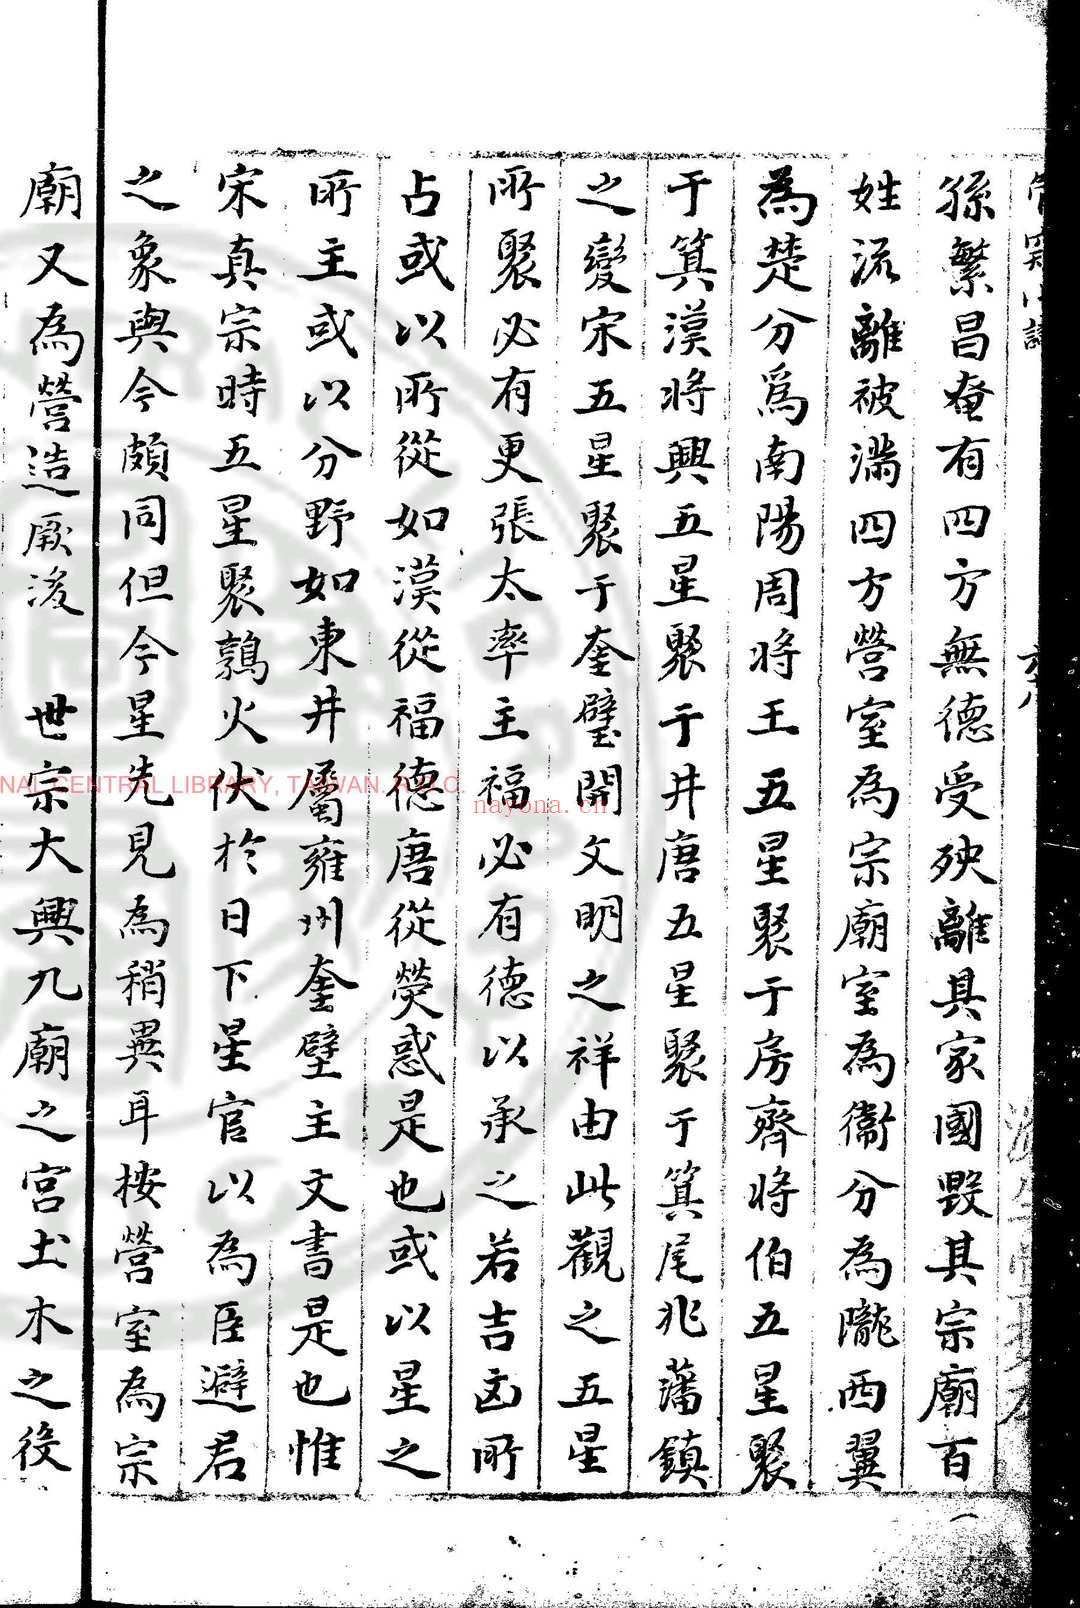 孫繁昌奄有四方無德受殃離其家國毀其宗廟百
姓流離被滿四方營室為宗廟室為衞分為隴西翼
為楚分爲南陽周將王五星聚于房齊將伯五星聚
于箕漢將興五星聚于井唐五星聚于箕尾兆藩鎮
之變宋五星聚于奎璧開文明之祥由此觀之五星
所聚必有更張太率主福必有德以承之若吉凶所
占或以所從如漢從福德唐從熒惑是也或以星之
所主或以分野如東井屬雍州奎壁主文書是也惟
宋真宗時五星聚鶉火伏於日下星官以為臣避君
之象與今頗同但今星先見為稍異耳按營室為宗
廟又為營造厥後 世宗大興九廟之宮土木之役
NAL CENTRAL LIBRARY, TAIWAN. R.O.C.
nayona.cn